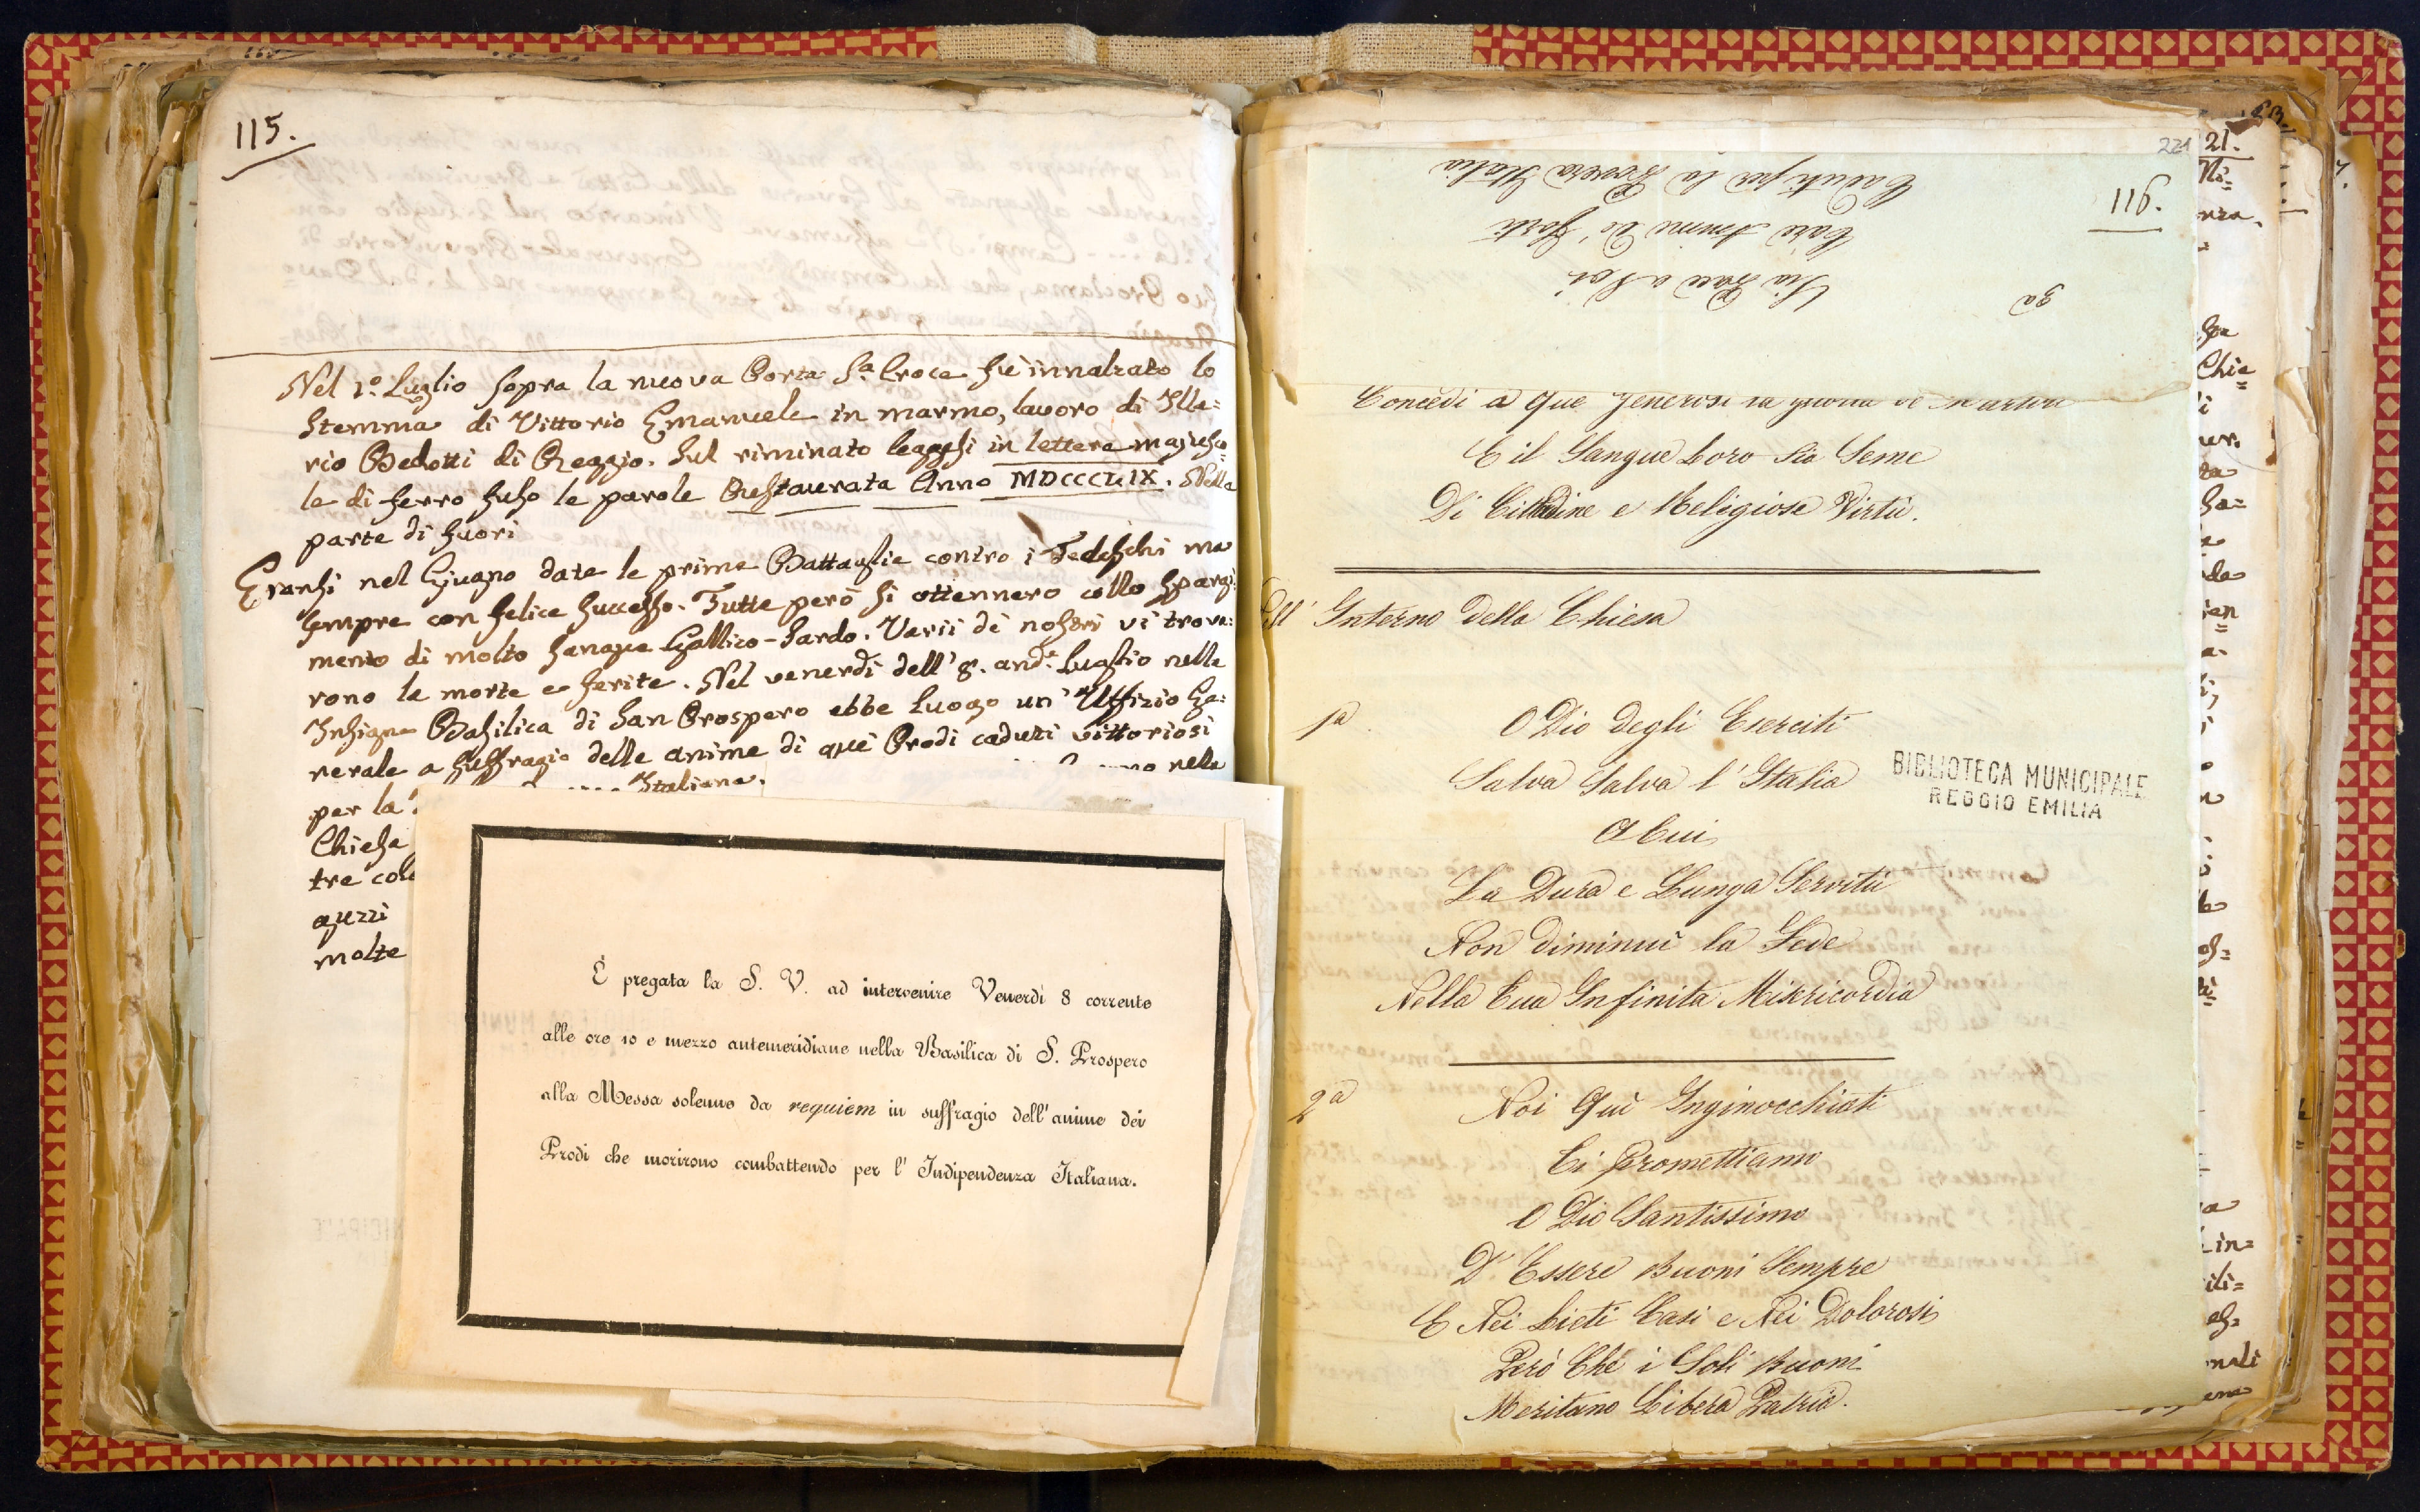 115.
Nel 1.º Luglio sopra la nuova Porta S.ª Croce fu innalzato lo
stemma di Vittorio Emanuele in marmo, lavoro di Illa=
rio Bedotti di Reggio. Sul riminato leggesi in lettere majusco=
le di ferro fuso le parole Restaurata Anno MDCCCLIX. Nella
parte di fuori
Eransi nel Giugno date le prime Battaglie contro i Tedeschi ma
sempre con felice successo. Tutte però si ottennero collo spargi=
mento di molto sangue Gallico-Sardo. Varii de nostri vi trova=
rono la morte e ferite. Nel venerdì dell' 8. and.e Luglio nella
Insigne Basilica di San Prospero ebbe luogo un' Uffizio Ge=
nerale a suffragio delle anime di que' Prodi caduti vittoriosi
per la Italiana. nella
Chiesa
tre col
aguzzi
molte
È pregata la S. V. ad intervenire Venerdì 8 corrente
alle ore 10 e mezzo antemeridiane nella Basilica di S. Prospero
alla Messa solenne da requiem in suffragio dell' anime dei
Prodi che morirono combattendo per l' Indipendenza Italiana.
221
116.
3ª
Sia Pace a Voi
Care Anime de' Forti
Caduti per la Povera Italia
Concedi a que' generosi la
E il Sangue Loro Sia Seme
Di Cittadine e Religiose Virtù.
Interno della Chiesa
1ª
O Dio degli Eserciti
Salva Salva l' Italia
A Cui
La Dura e Lunga Servitù
Non diminuì la Fede
Nella Tua Infinita Misericordia
BIBLIOTECA MUNICIPALE
REGGIO EMILIA
2ª
Noi Quì Inginocchiati
Ti Promettiamo
O Dio Santissimo
D' Essere Buoni Sempre
E Nei Lieti Casi e Nei Dolorosi
Però Che i Soli Buoni
Meritano Libera Patria.
21.